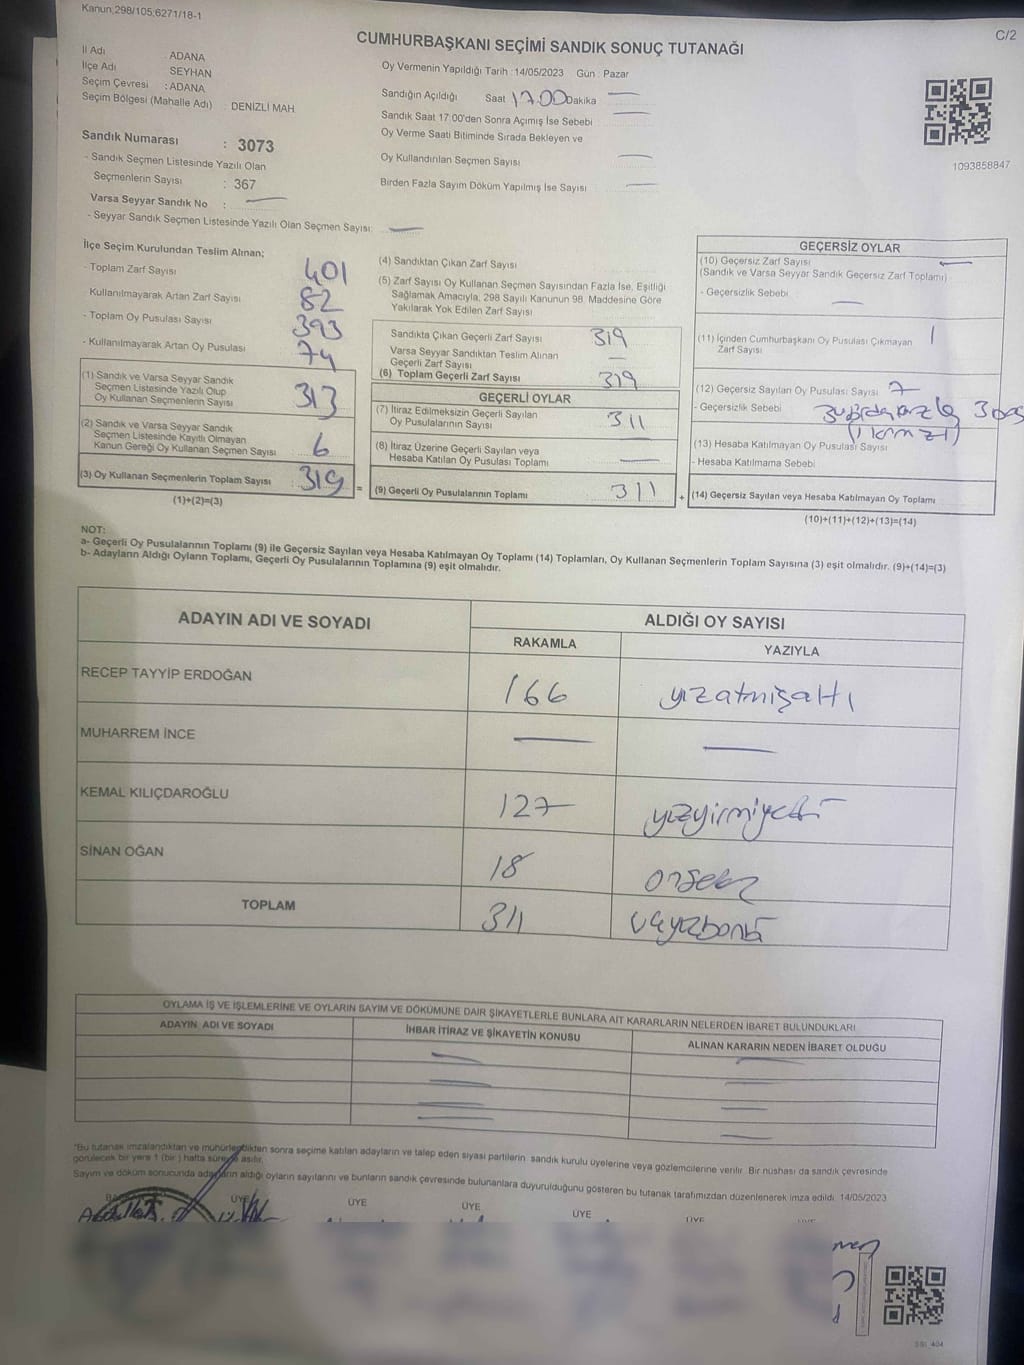 Kanun;298/105;6271/18-1
C/2
CUMHURBAŞKANI SEÇİMİ SANDIK SONUÇ TUTANAĞI
İl Adı : ADANA
İlçe Adı : SEYHAN
Seçim Çevresi : ADANA
Seçim Bölgesi (Mahalle Adı) : DENİZLİ MAH
Oy Vermenin Yapıldığı Tarih :14/05/2023 Gün : Pazar
Sandığın Açıldığı Saat 17.00 Dakika
Sandık Saat 17:00'den Sonra Açımış İse Sebebi
Oy Verme Saati Bitiminde Sırada Bekleyen ve
Oy Kullandırılan Seçmen Sayısı
Birden Fazla Sayım Döküm Yapılmış İse Sayısı
1093858847
Sandık Numarası : 3073
- Sandık Seçmen Listesinde Yazılı Olan
Seçmenlerin Sayısı : 367
Varsa Seyyar Sandık No :
- Seyyar Sandık Seçmen Listesinde Yazılı Olan Seçmen Sayısı:
İlçe Seçim Kurulundan Teslim Alınan;
- Toplam Zarf Sayısı 401
- Kullanılmayarak Artan Zarf Sayısı 82
- Toplam Oy Pusulası Sayısı 393
- Kullanılmayarak Artan Oy Pusulası 74
(1) Sandık ve Varsa Seyyar Sandık
Seçmen Listesinde Yazılı Olup
Oy Kullanan Seçmenlerin Sayısı 313
(2) Sandık ve Varsa Seyyar Sandık
Seçmen Listesinde Kayıtlı Olmayan
Kanun Gereği Oy Kullanan Seçmen Sayısı 6
(3) Oy Kullanan Seçmenlerin Toplam Sayısı 319
(1)+(2)=(3)
(4) Sandıktan Çıkan Zarf Sayısı
(5) Zarf Sayısı Oy Kullanan Seçmen Sayısından Fazla İse, Eşitliği
Sağlamak Amacıyla, 298 Sayılı Kanunun 98. Maddesine Göre
Yakılarak Yok Edilen Zarf Sayısı
Sandıkta Çıkan Geçerli Zarf Sayısı 319
Varsa Seyyar Sandıktan Teslim Alınan
Geçerli Zarf Sayısı
(6) Toplam Geçerli Zarf Sayısı 319
GEÇERLİ OYLAR
(7) İtiraz Edilmeksizin Geçerli Sayılan
Oy Pusulalarının Sayısı 311
(8) İtiraz Üzerine Geçerli Sayılan veya
Hesaba Katılan Oy Pusulası Toplamı
= (9) Geçerli Oy Pusulalarının Toplamı 311
GEÇERSİZ OYLAR
(10) Geçersiz Zarf Sayısı
(Sandık ve Varsa Seyyar Sandık Geçersiz Zarf Toplamı)
- Geçersizlik Sebebi
(11) İçinden Cumhurbaşkanı Oy Pusulası Çıkmayan
Zarf Sayısı 1
(12) Geçersiz Sayılan Oy Pusulası Sayısı 7
- Geçersizlik Sebebi
(13) Hesaba Katılmayan Oy Pusulası Sayısı
- Hesaba Katılmama Sebebi
+ (14) Geçersiz Sayılan veya Hesaba Katılmayan Oy Toplamı
(10)+(11)+(12)+(13)=(14)
NOT:
a- Geçerli Oy Pusulalarının Toplamı (9) ile Geçersiz Sayılan veya Hesaba Katılmayan Oy Toplamı (14) Toplamları, Oy Kullanan Seçmenlerin Toplam Sayısına (3) eşit olmalıdır. (9)+(14)=(3)
b- Adayların Aldığı Oyların Toplamı, Geçerli Oy Pusulalarının Toplamına (9) eşit olmalıdır.
ADAYIN ADI VE SOYADI ALDIĞI OY SAYISI
RAKAMLA YAZIYLA
RECEP TAYYİP ERDOĞAN 166 yüzatmışaltı
MUHARREM İNCE
KEMAL KILIÇDAROĞLU 127 yüzyirmiyedi
SİNAN OĞAN 18 onsekiz
TOPLAM 311 üçyüzonbir
OYLAMA İŞ VE İŞLEMLERİNE VE OYLARIN SAYIM VE DÖKÜMÜNE DAİR ŞİKAYETLERLE BUNLARA AİT KARARLARIN NELERDEN İBARET BULUNDUKLARI
ADAYIN ADI VE SOYADI İHBAR İTİRAZ VE ŞİKAYETİN KONUSU ALINAN KARARIN NEDEN İBARET OLDUĞU
*Bu tutanak imzalandıktan ve mühürlendikten sonra seçime katılan adayların ve talep eden siyasi partilerin sandık kurulu üyelerine veya gözlemcilerine verilir. Bir nüshası da sandık çevresinde
görülecek bir yere 1 (bir ) hafta süreyle asılır.
Sayım ve döküm sonucunda adayların aldığı oyların sayılarını ve bunların sandık çevresinde bulunanlara duyurulduğunu gösteren bu tutanak tarafımızdan düzenlenerek imza edildi. 14/05/2023
ÜYE ÜYE ÜYE ÜYE ÜYE